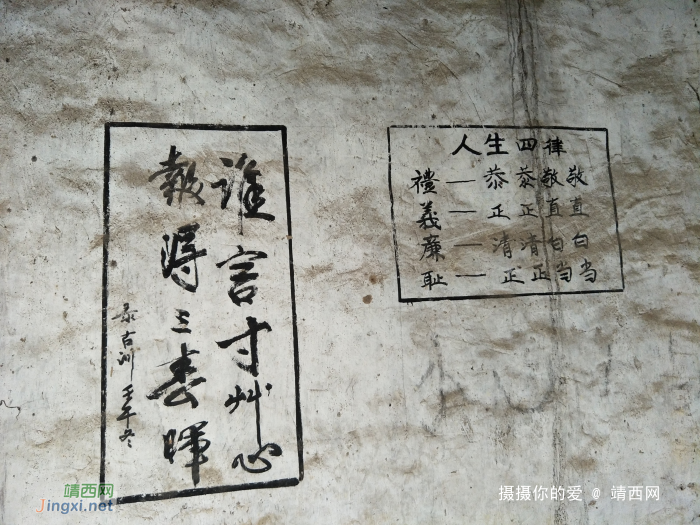 誰言寸艸心
報得三春暉
录古訓 壬午冬
人生四律
禮 — 恭恭敬敬
義 — 正正直直
廉 — 清清白白
耻 — 正正当当
靖西网
Jingxi.net
摄摄你的爱 @ 靖西网